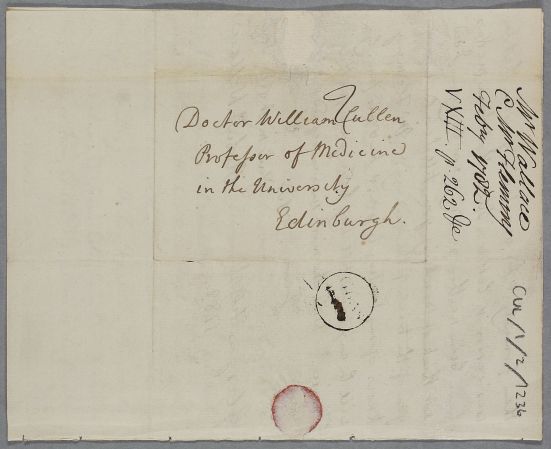 Doctor William Cullen
Professor of Medicine
in the University
Edinburgh.
Mr Wallace
C. Mr Flemming
Feby 1782.
V XIII. p. 262 &c
CUL/1/2/1236